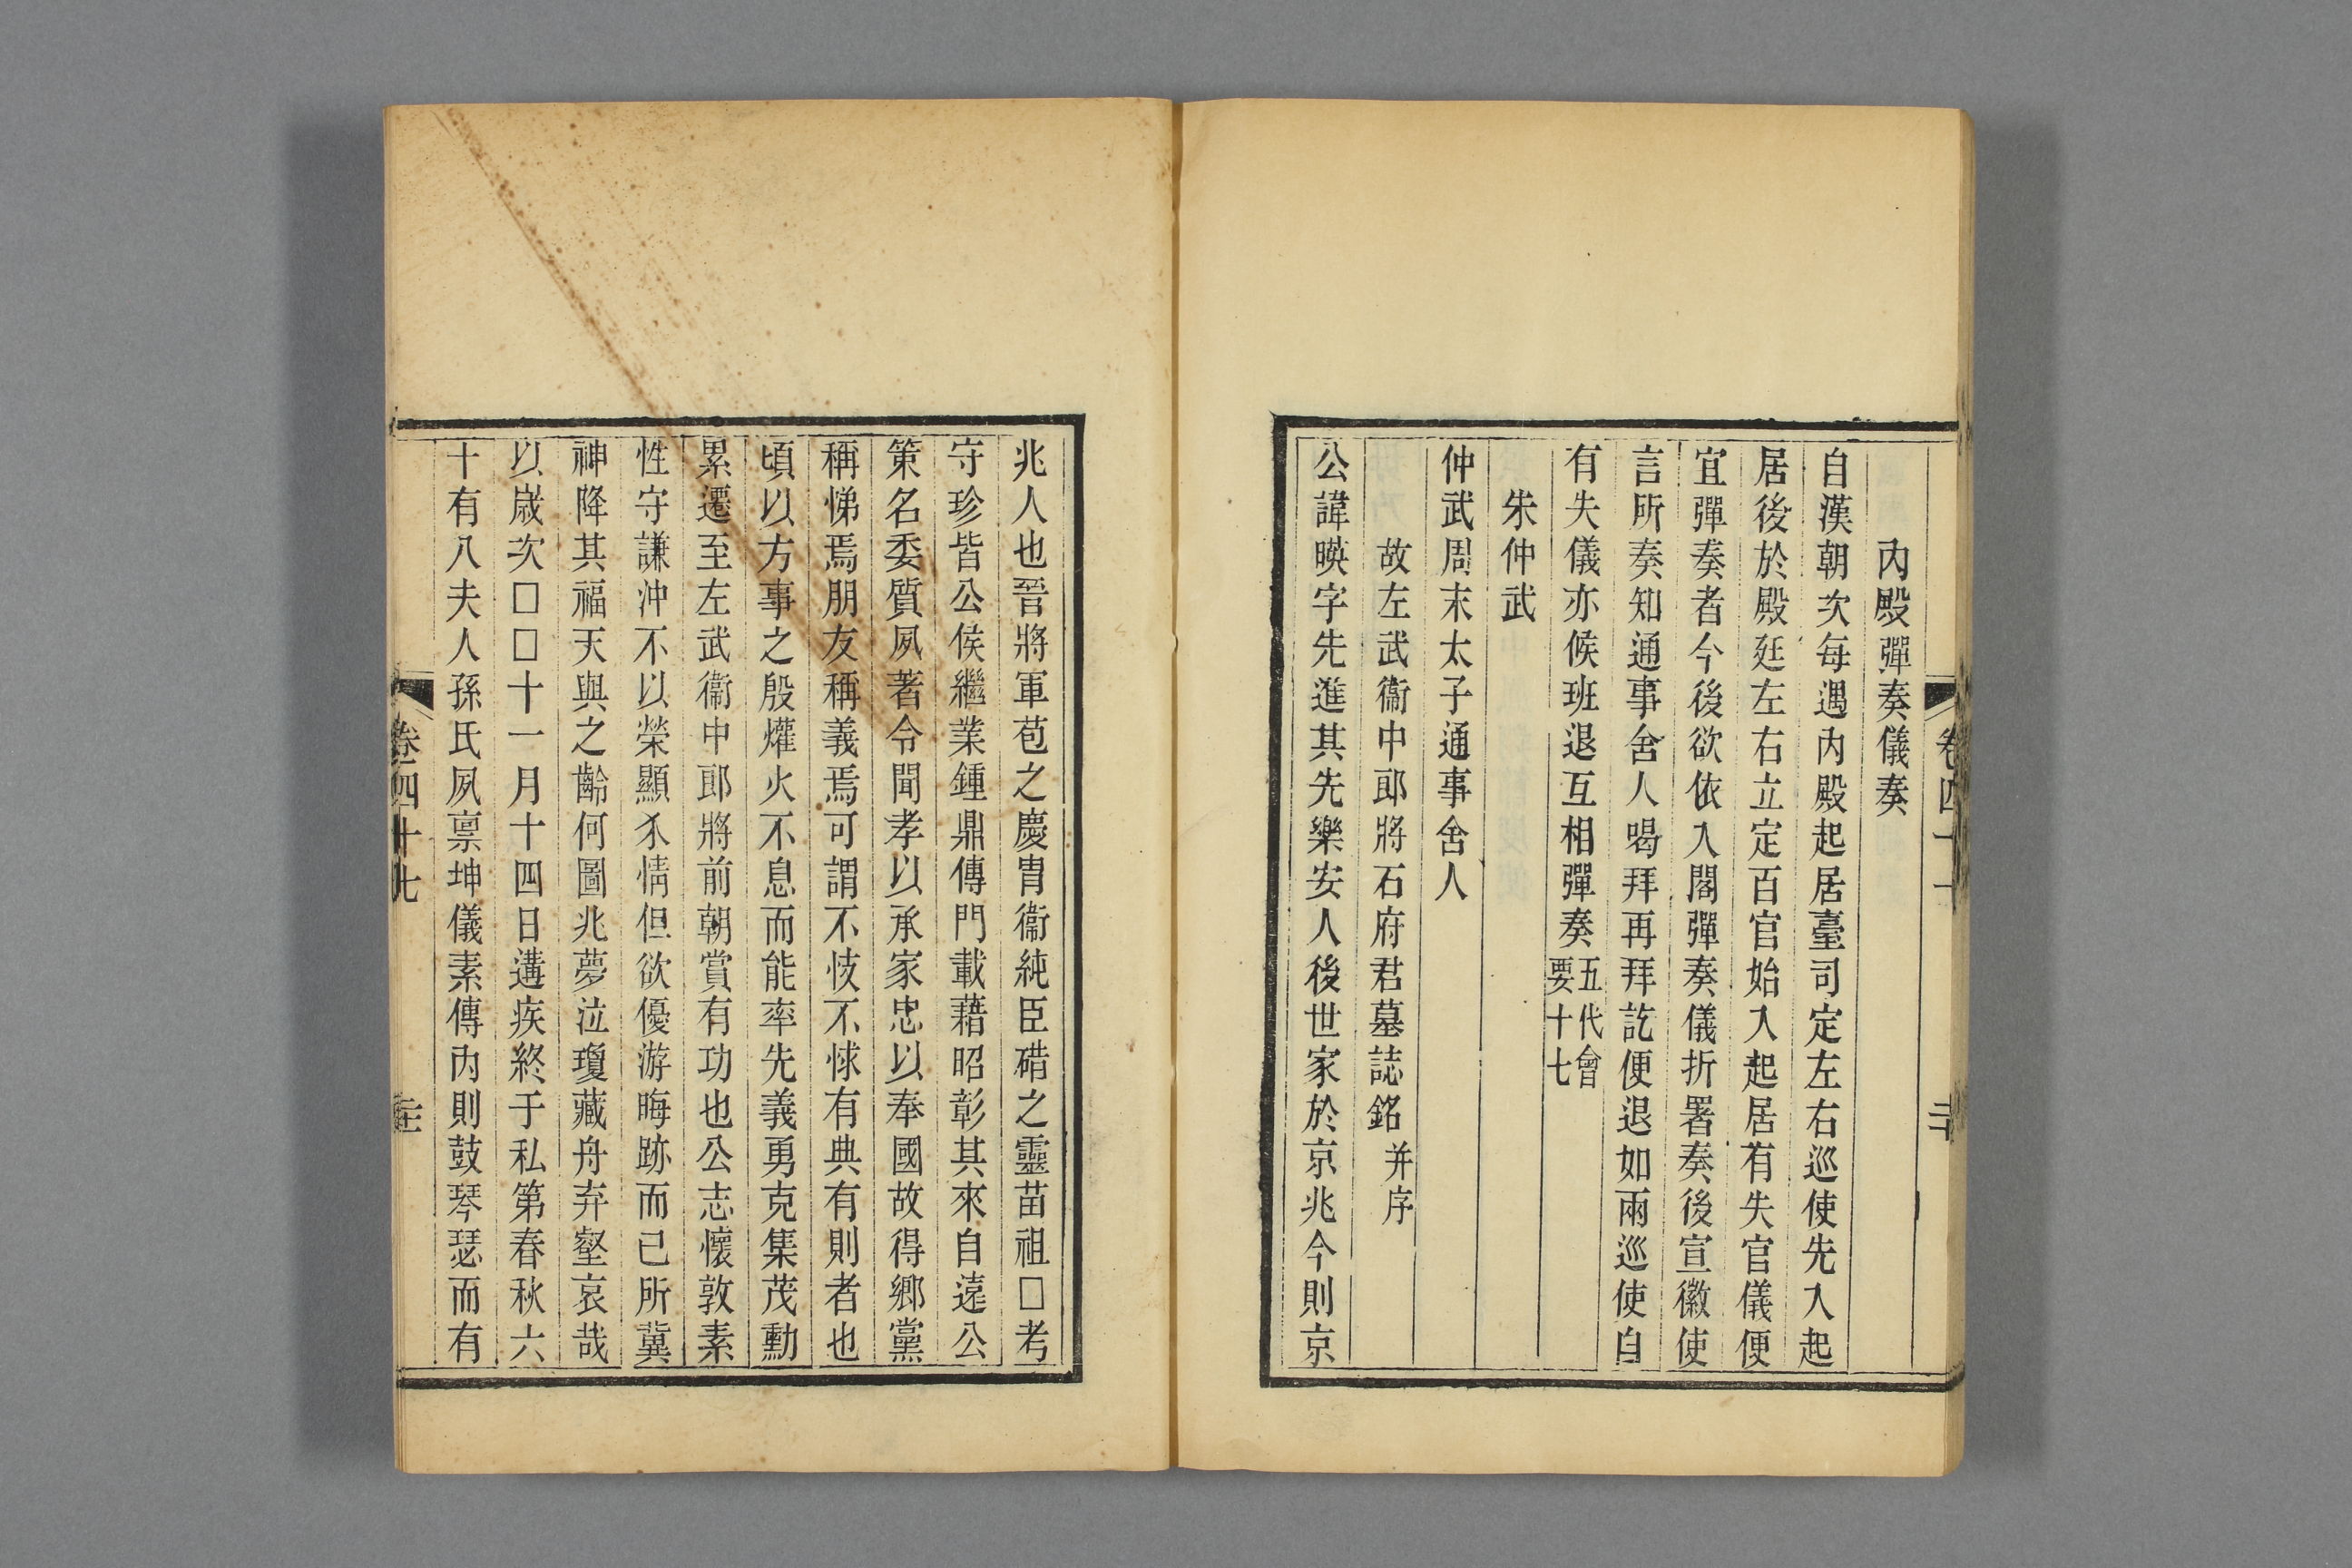 內殿彈奏儀奏
自漢朝次每遇內殿起居臺司定左右巡使先入起
居後於殿廷左右立定百官始入起居有失官儀便
宜彈奏者今後欲依入閣彈奏儀折署奏後宣徽使
言所奏知通事舍人喝拜再拜訖便退如兩巡使自
有失儀亦候班退互相彈奏五代會
要十七
朱仲武
仲武周末太子通事舍人
故左武衞中郎將石府君墓誌銘并序
公諱暎字先進其先樂安人後世家於京兆今則京
兆人也晉將軍苞之慶胄衞純臣碏之靈苗祖□考
守珍皆公侯繼業鍾鼎傳門載藉昭彰其來自遠公
策名委質夙著令聞孝以承家忠以奉國故得鄉黨
稱悌焉朋友稱義焉可謂不忮不悚有典有則者也
頃以方事之殷爟火不息而能率先義勇克集茂勳
累遷至左武衞中郎將前朝賞有功也公志懷敦素
性守謙沖不以榮顯介情但欲優游晦跡而已所冀
神降其福天與之齡何圖兆夢泣瓊藏舟弃壑哀哉
以歲次□□十一月十四日遘疾終于私第春秋六
十有八夫人孫氏夙禀坤儀素傳內則鼓琴瑟而有
卷四十七